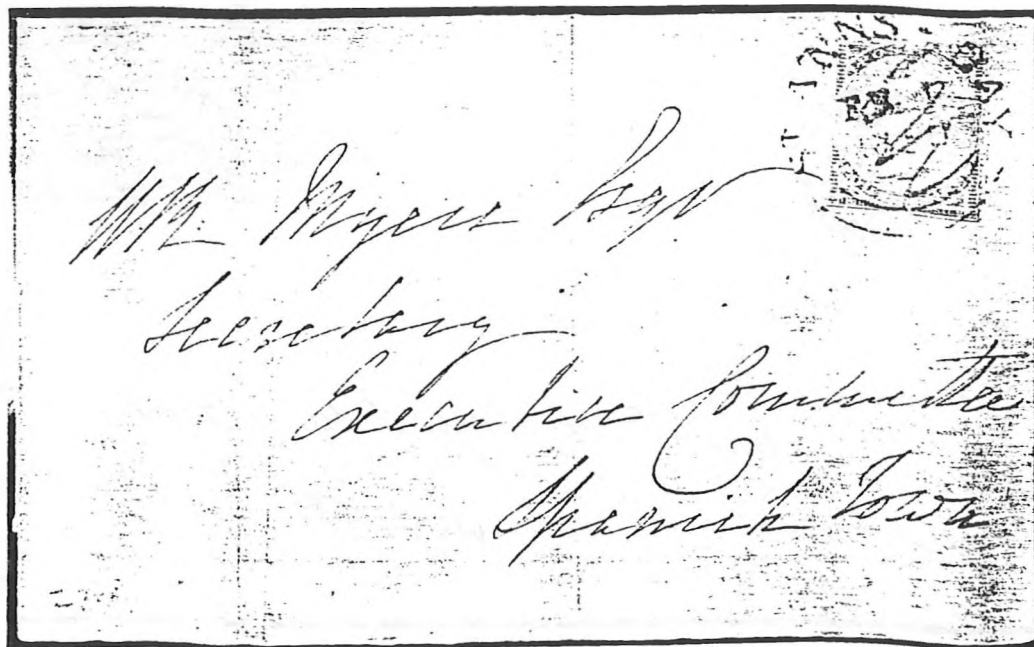 ST. ANNS
Wm. Myers Esqr
Secretary
Executive Committee
Spanish Town